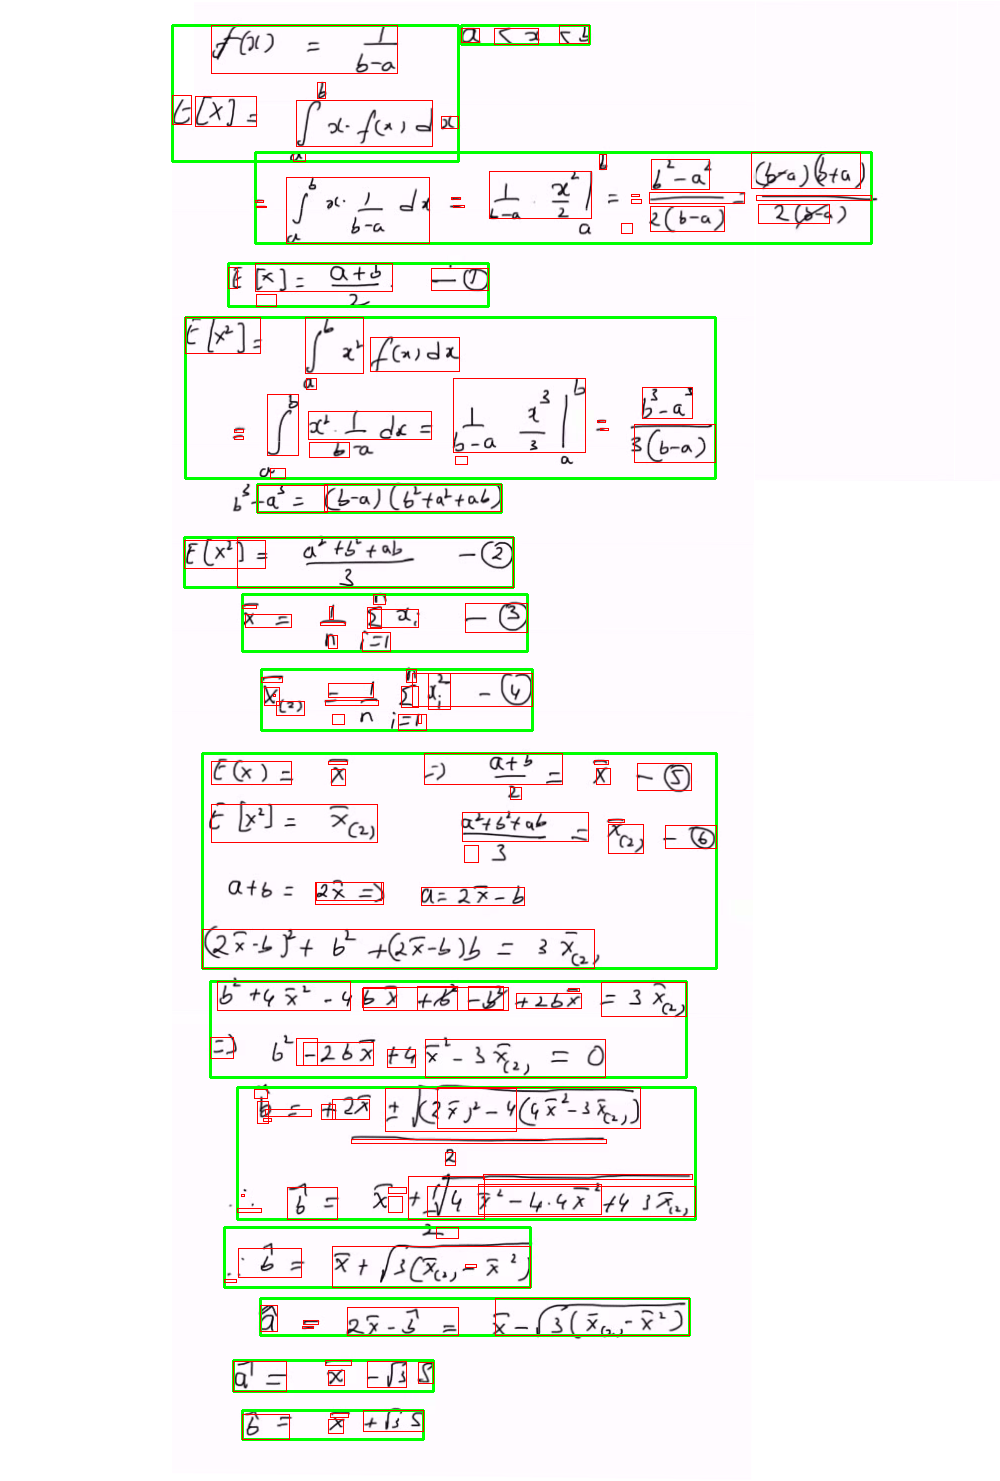 f(x) = 1/(b-a)   a < x < b
E[X] = ∫_a^b x · f(x) dx
= ∫_a^b x · 1/(b-a) dx = 1/(b-a) · x²/2 |_a^b = = (b²-a²)/(2(b-a)) = (b-a)(b+a)/(2(b-a))
E[x] = (a+b)/2   — ①
E[x²] = ∫_a^b x² f(x) dx
= ∫_a^b x² · 1/(b-a) dx = 1/(b-a) x³/3 |_a^b = (b³-a³)/(3(b-a))
b³-a³ = (b-a)(b²+a²+ab)
E[x²] = (a²+b²+ab)/3   — ②
x̄ = 1/n Σ_{i=1}^n x_i   — ③
x̄_(2) = 1/n Σ_{i=1}^n x_i²   — ④
E(x) = x̄   ⇒ (a+b)/2 = x̄   — ⑤
E[x²] = x̄_(2)   (a²+b²+ab)/3 = x̄_(2)   — ⑥
a+b = 2x̄ ⇒ a = 2x̄-b
(2x̄-b)² + b² + (2x̄-b)b = 3 x̄_(2)
b² + 4x̄² - 4bx̄ + b² - b² + 2bx̄ = 3x̄_(2)
⇒ b² - 2bx̄ + 4x̄² - 3x̄_(2) = 0
b̂ = (+2x̄ ± √((2x̄)² - 4(4x̄²-3x̄_(2))))/2
∴ b̂ = x̄ + √(4x̄² - 4·4x̄² + 4 3x̄_(2))/2
∴ b̂ = x̄ + √(3(x̄_(2) - x̄²))
â = 2x̄ - b̂ = x̄ - √(3(x̄_(2) - x̄²))
â = x̄ - √3 S
b̂ = x̄ + √3 S